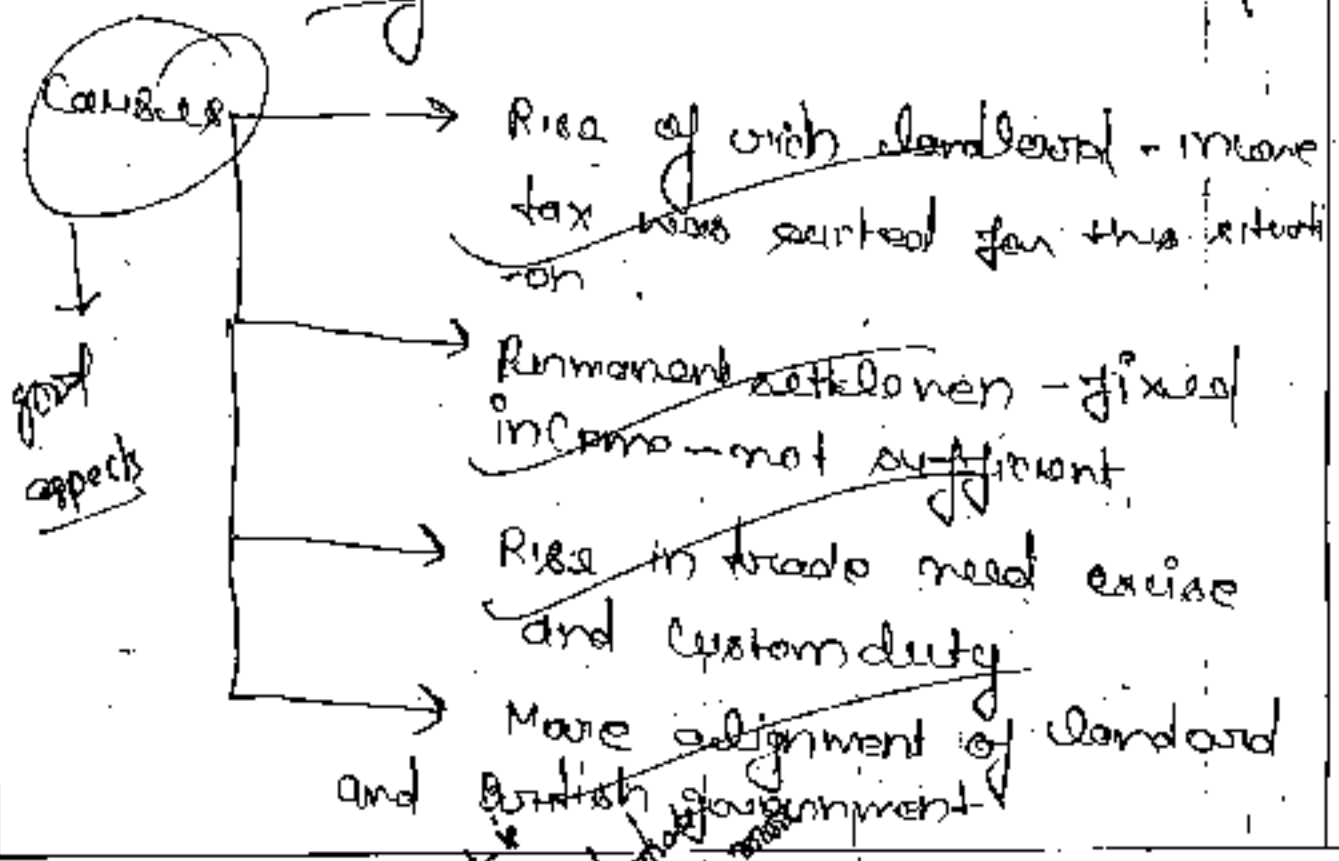 Causes
Rise of rich landlord - income
tax was sarted for this situati
-on
good
aspects
Permanent settlemen - fixed
income - not sufficient
Rise in trade need excise
and Custom duty
More alignment of landlord
and British government